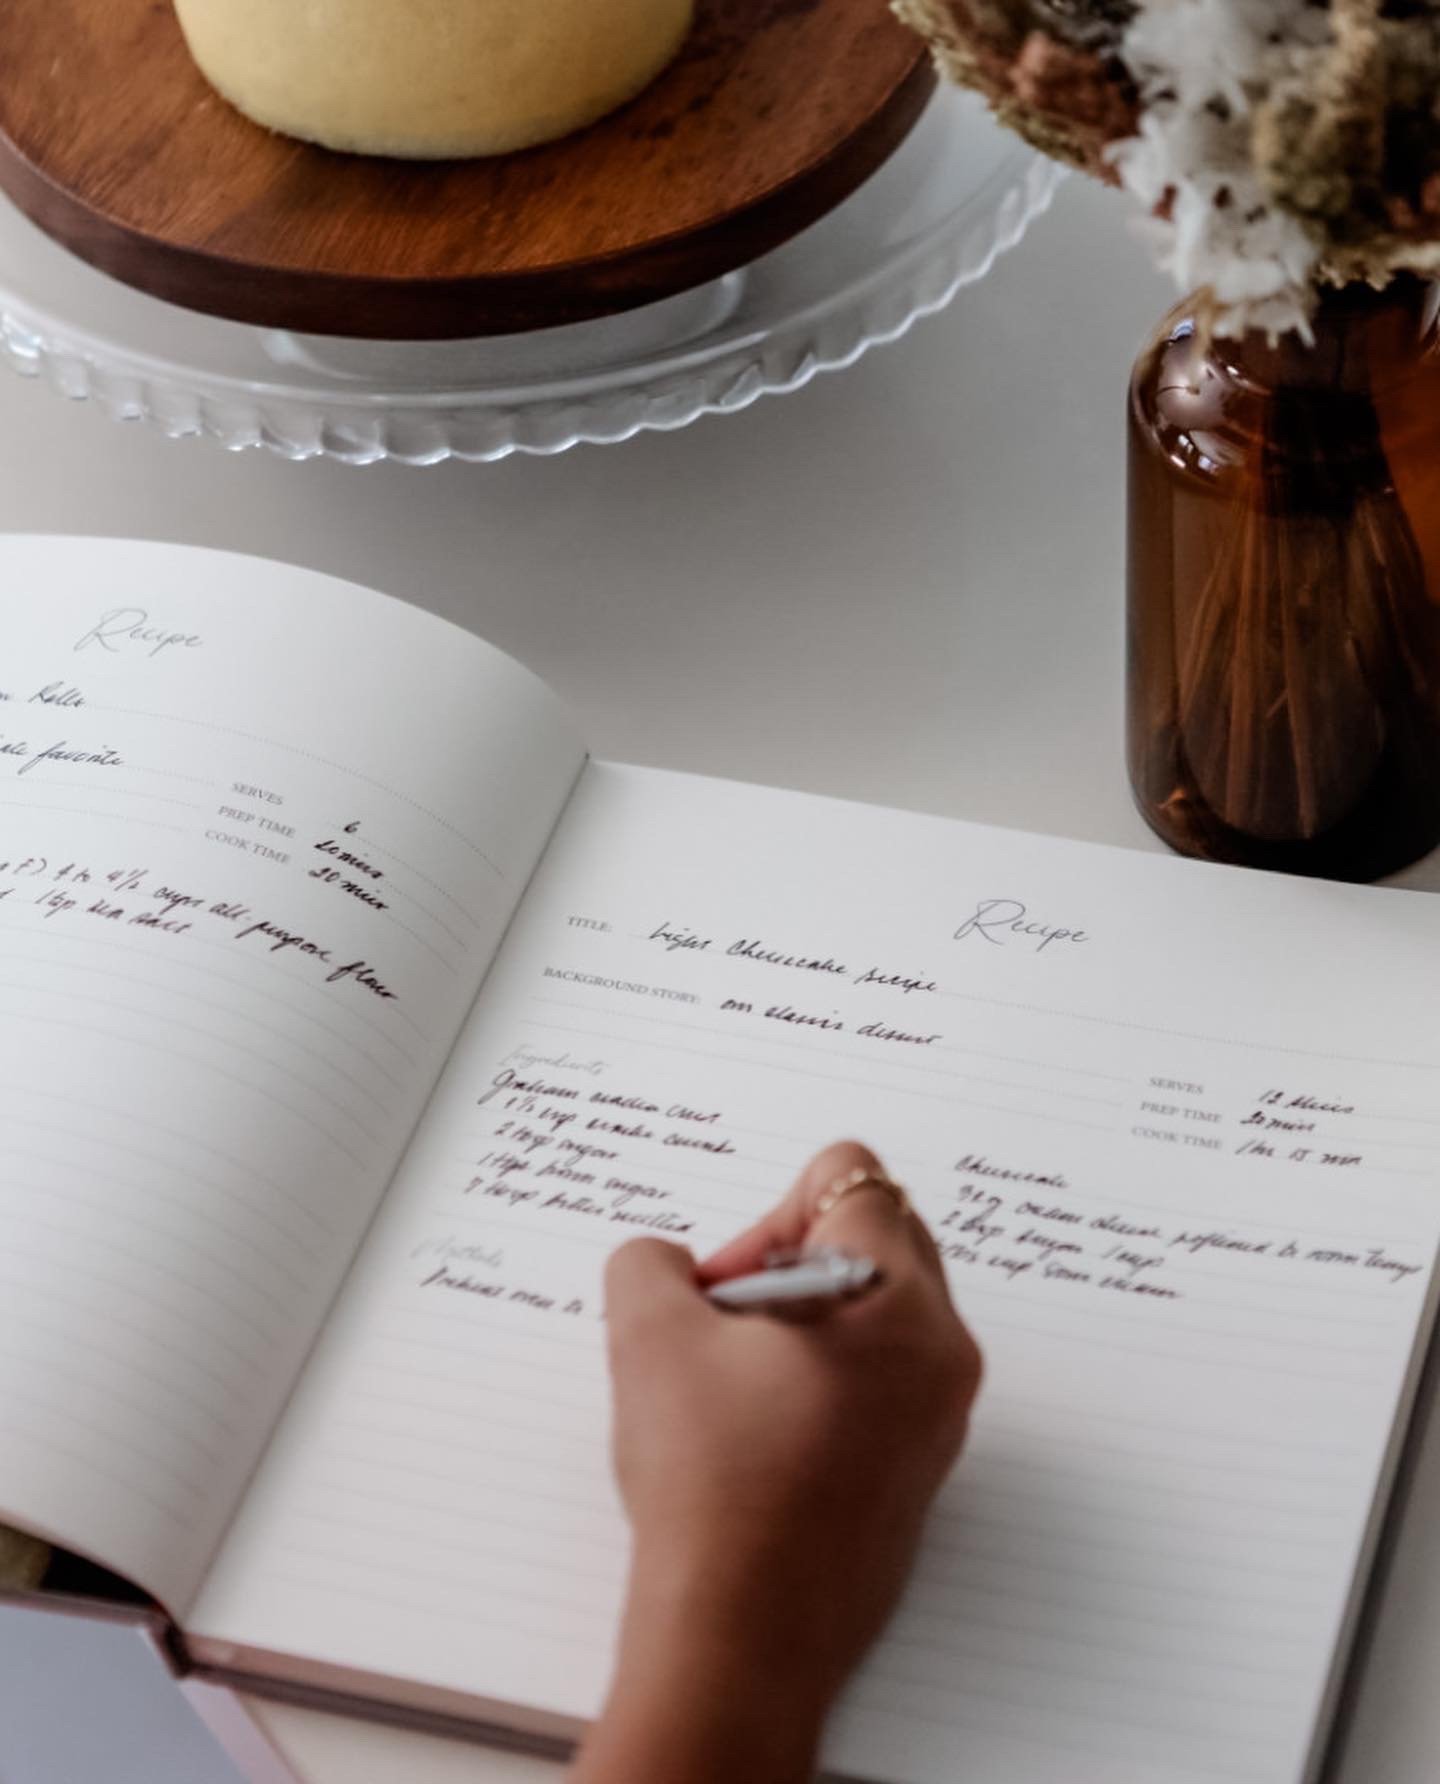 Recipe
Rolls
favorite
SERVES 6
PREP TIME 20 mins
COOK TIME 20 mins
4 to 4 1/2 cups all-purpose flour
1 tsp sea salt
Recipe
TITLE: Light Cheesecake recipe
BACKGROUND STORY: our classic dessert
SERVES 12 slices
PREP TIME 20 mins
COOK TIME 1 hr 15 min
Ingredients
Graham cracker crust
1 1/2 cup cracker crumbs
2 tbsp sugar
1 tbps brown sugar
7 tbsp butter melted
Cheesecake
cream cheese softened to room temp
sugar 1 cup
cup sour cream
Methods
Preheat oven to